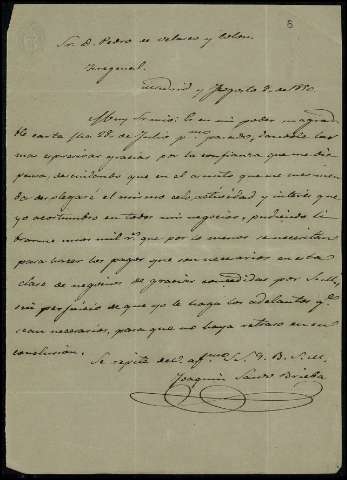 8
Sr. D. Pedro de Velasco y
Fregenal.
Madrid y Agosto 2. de 1880.
Muy Sr. mio: es en mi poder su agrada-
ble carta fha. 28. de Julio pmo. pasado, dandole las
mas espresivas gracias por la confianza que me dis-
pensa que en el asunto que me
da desplegaré el mismo celo, actividad y interés que
yo acostumbro en todos mis negocios, pudiendo li-
brarme unos mil rs. que por lo menos se necesitan
para hacer los pagos que son necesarios en esta
clase de negocios de gracias concedidas por S. M.,
sin perjuicio de que yo le haga los adelantos qe.
sean necesarios, para que no haya retraso en su
conclusion.
Se repite de V. affmo. S. S. Q. B. S. M.
Joaquin Sanz Brieba